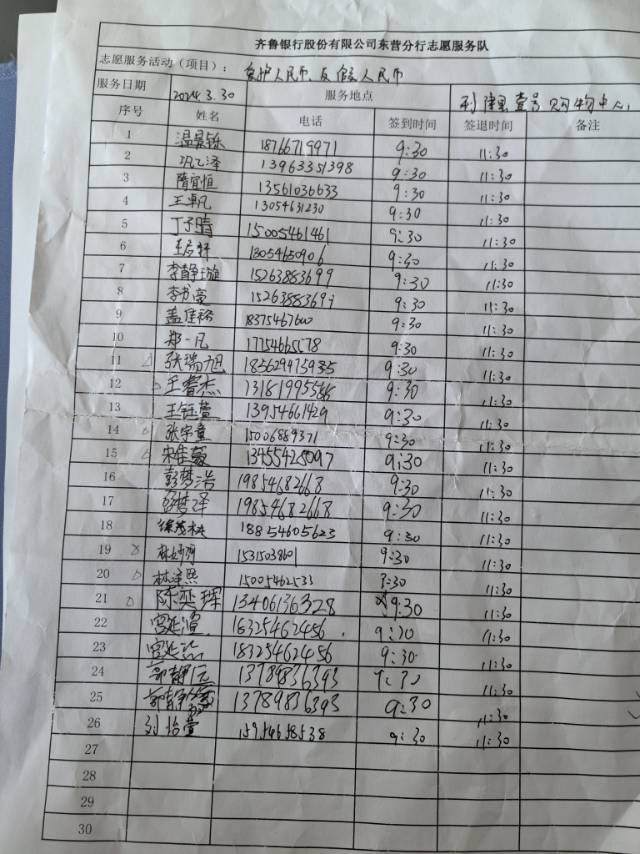 齐鲁银行股份有限公司东营分行志愿服务队
志愿服务活动(项目): 爱护人民币 反假人民币
服务日期 2024.3.30 服务地点 利津县壹号购物中心
序号 姓名 电话 签到时间 签退时间 备注
1 温景铄 18766719971 9:30 11:30
2 巩乙泽 13963351398 9:30 11:30
3 隋宜恒 13561036633 9:30 11:30
4 王卓凡 13054631230 9:30 11:30
5 丁子晴 15005461461 9:30 11:30
6 13054650906 9:30 11:30
7 李静璇 15263883699 9:30 11:30
8 李书亮 15263883699 9:30 11:30
9 孟佳裕 18375467600 9:30 11:30
10 郑一凡 17754665678 9:30 11:30
11 张瑞旭 18562973935 9:30 11:30
12 王睿杰 9:30 11:30
13 王钰萱 13954661429 9:30 11:30
14 张宇童 15006889371 9:30 11:30
15 13455425097 9:30 11:30
16 彭梦浩 19854682668 9:30 11:30
17 彭梦泽 19854682668 9:30 11:30
18 18854605623 9:30 11:30
19 9:30 11:30
20 15005462533 9:30 11:30
21 陈奕辉 13406136328 9:30 11:30
22 宫延 18325462456 9:30 11:30
23 宫延 18325462456 9:30 11:30
24 郭静 13789836393 9:30 11:30
25 郭静 13789836393 9:30 11:30
26 刘怡萱 15954658538 9:30 11:30
27
28
29
30